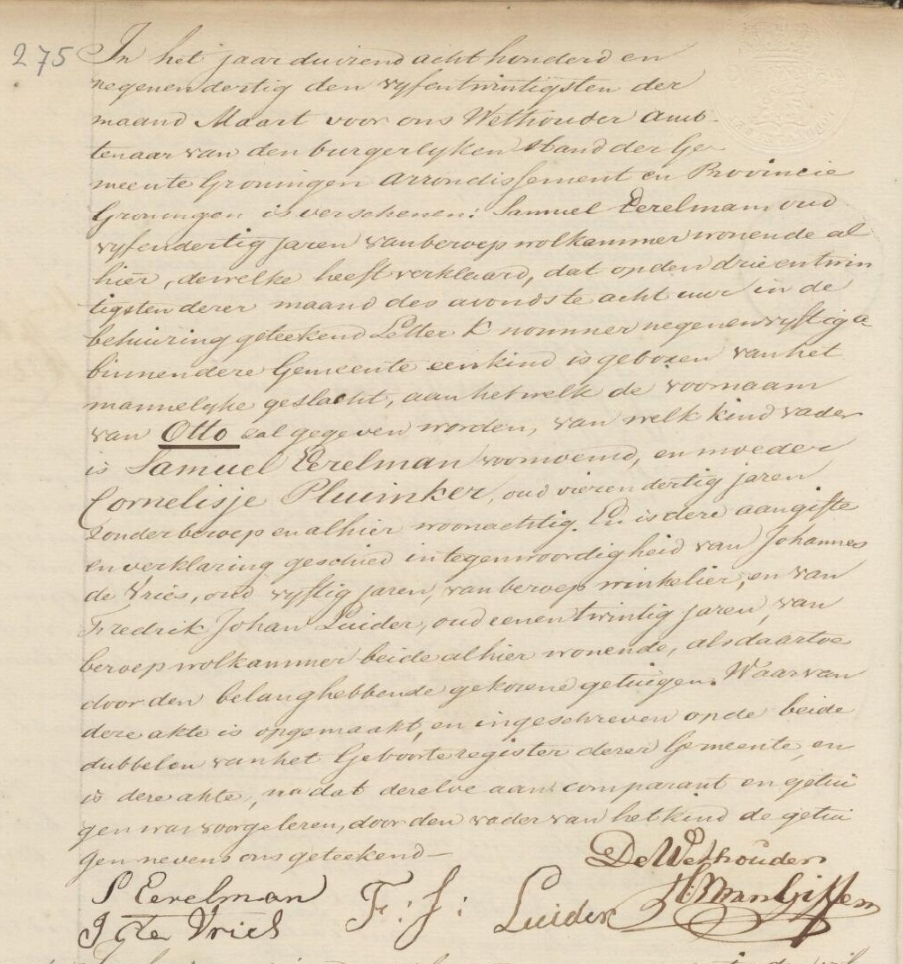 275 In het jaar duizend acht honderd en
negenendertig den vyfentwintigsten der
maand Maart voor ons Wethouder Amb-
tenaar van den burgerlyken Stand der Ge-
meente Groningen arrondissement en Provincie
Groningen is verschenen: Samuel Eerelman, oud
vyfendertig jaren van beroep wolkammer wonende al
hier, dewelke heeft verklaard, dat op den drieentwin
tigsten dezer maand des avonds te acht uur in de
behuizing geteekend Letter K nommer negenenvyftig a
binnen deze Gemeente een kind is geboren van het
mannelyke geslacht, aan hetwelk de voornaam
van Otto zal gegeven worden, van welk kind vader
is Samuel Eerelman voornoemd, en moeder
Cornelisje Pluimker, oud vierendertig jaren
zonder beroep en alhier woonachtig. En is deze aangifte
en verklaring geschied in tegenwoordigheid van Johannes
de Vries, oud vyftig jaren, van beroep winkelier, en van
Fredrik Johan Luider, oud eenentwintig jaren, van
beroep wolkammer beide alhier wonende, als daartoe
door den belanghebbende gekozene getuigen. Waarvan
deze akte is opgemaakt, en ingeschreven op de beide
dubbelen van het Geboorteregister dezer Gemeente, en
is deze akte, na dat dezelve aan comparant en getui
gen was voorgelezen, door den vader van het kind de getui
gen nevens ons geteekend —
De Wethouder
S Eerelman
F: J: Luider
H. van Giffen
J de Vries